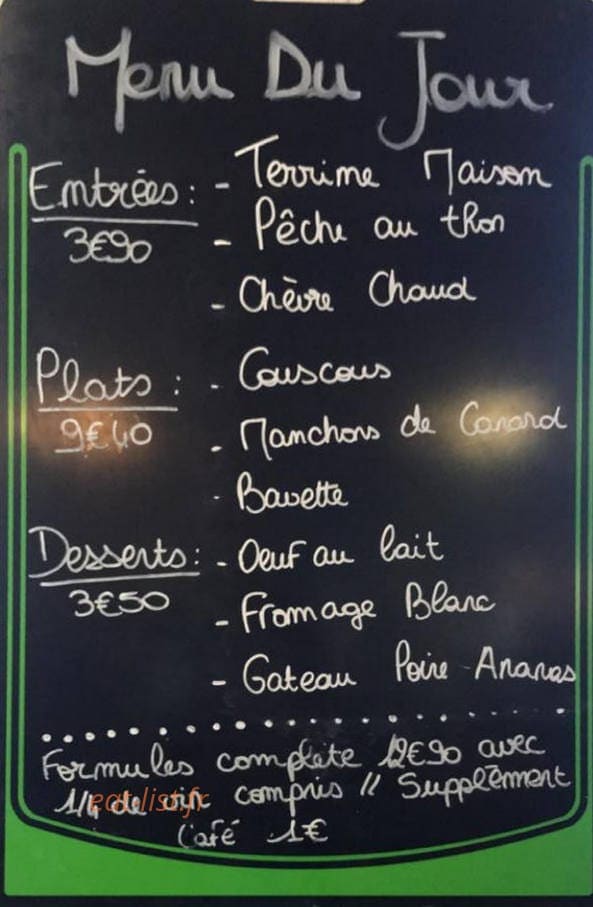 Menu Du Jour
Entrées : - Terrine Maison
3€90 - Pêche au thon
- Chèvre Chaud
Plats : - Couscous
9€40 - Manchons de Canard
- Bavette
Desserts : - Oeuf au lait
3€50 - Fromage Blanc
- Gateau Poire - Ananas
Formules complete 12€90 avec
1/4 de vin compris // Supplément
Café 1€